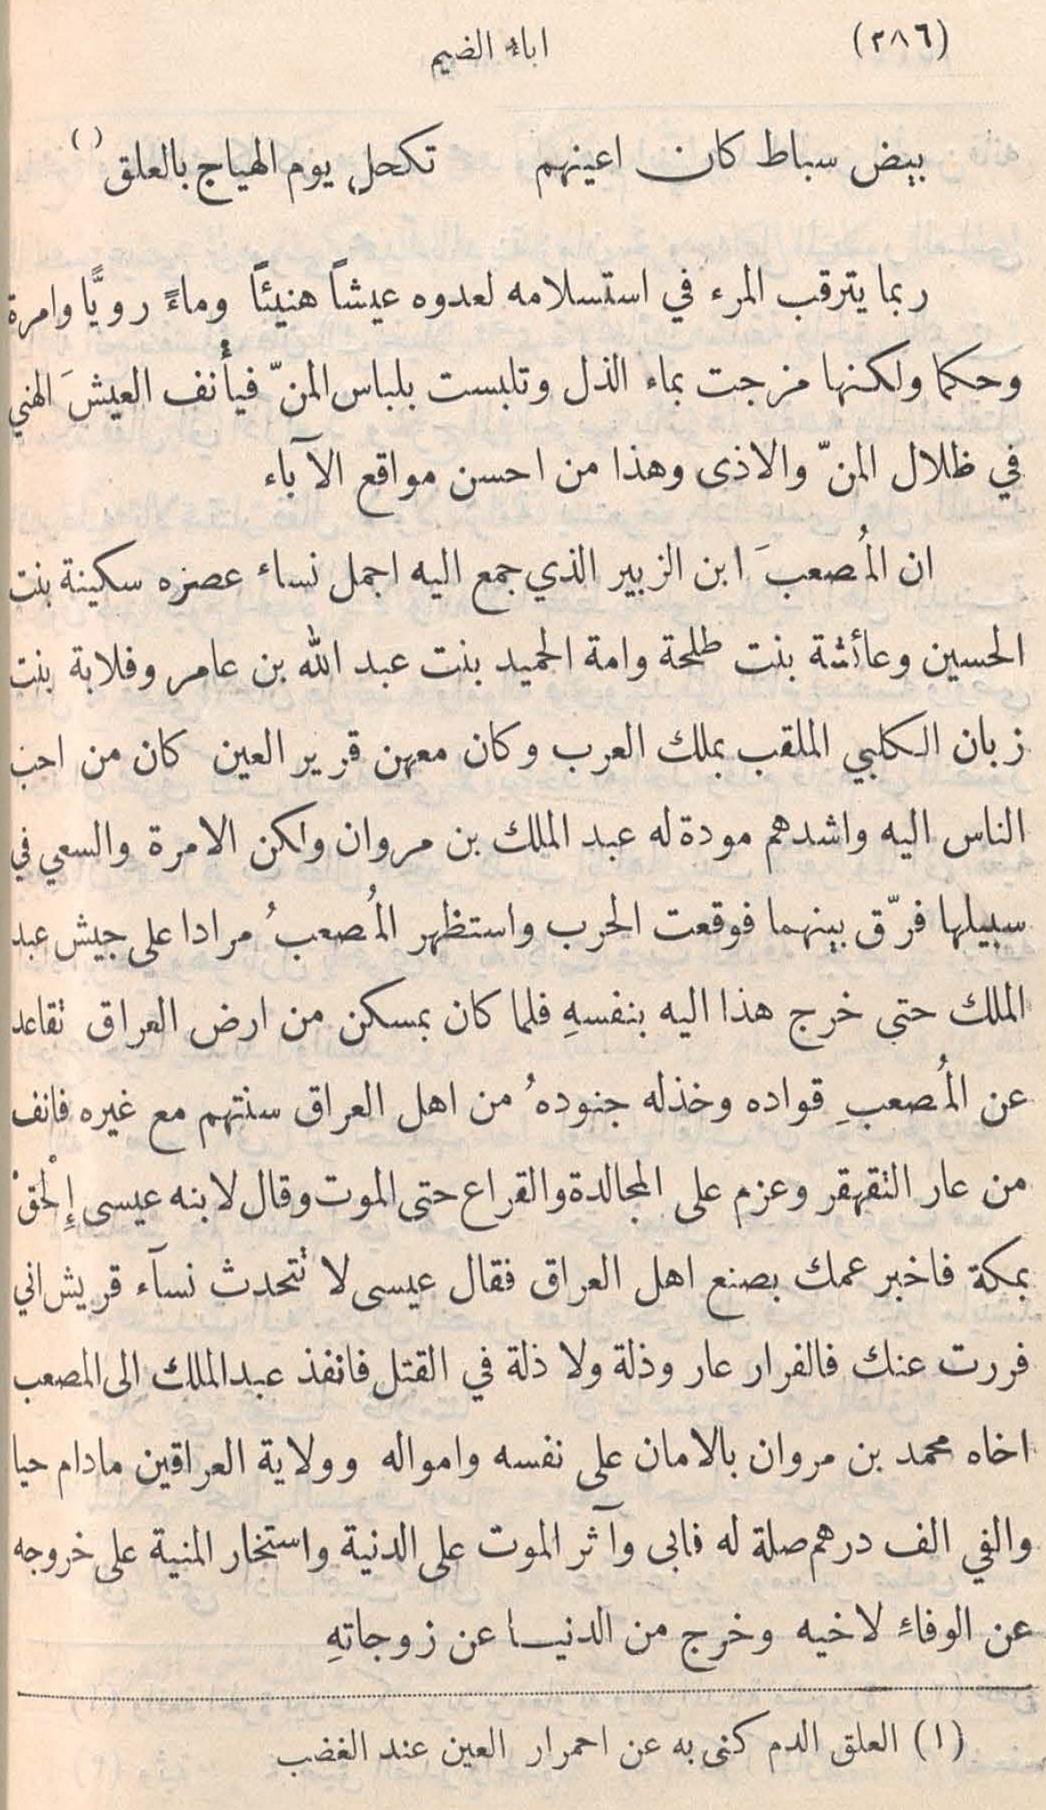 (٢٨٦)
اباء الضيم
بيض سباط كان اعينهم تكحل يوم الهياج بالعلق ( )
ربما يترقب المرء في استسلامه لعدوه عيشاً هنيئاً وماءً رويًّا وامرة
وحكما ولكنها مزجت بماء الذل وتلبست بلباس المنّ فيأنف العيشَ الهني
في ظلال المنّ والاذى وهذا من احسن مواقع الآباء
ان المُصعبَ ابن الزبير الذي جمع اليه اجمل نساء عصره سكينة بنت
الحسين وعائشة بنت طلحة وامة الحميد بنت عبد الله بن عامر وفلابة بنت
زبان الكلبي الملقب بملك العرب وكان معهن قرير العين كان من احب
الناس اليه واشدهم مودة له عبد الملك بن مروان ولكن الامرة والسعي في
سبيلها فرّق بينهما فوقعت الحرب واستظهر المُصعبُ مرادا على جيش عبد
الملك حتى خرج هذا اليه بنفسهِ فلما كان بمسكن من ارض العراق تقاعد
عن المُصعبِ قواده وخذله جنودهُ من اهل العراق سنتهم مع غيره فانف
من عار التقهقر وعزم على المجالدة والقراع حتى الموت وقال لابنه عيسى إِلْحَقْ
بمكة فاخبر عمك بصنع اهل العراق فقال عيسى لا تتحدث نسآء قريش اني
فررت عنك فالفرار عار وذلة ولا ذلة في القتل فانفذ عبد الملك الى المصعب
اخاه محمد بن مروان بالامان على نفسه وامواله وولاية العراقين مادام حيا
والفي الف درهم صلة له فابى وآثر الموت على الدنية واستخار المنية على خروجه
عن الوفاءِ لاخيه وخرج من الدنيا عن زوجاتهِ
(١) العلق الدم كنى به عن احمرار العين عند الغضب